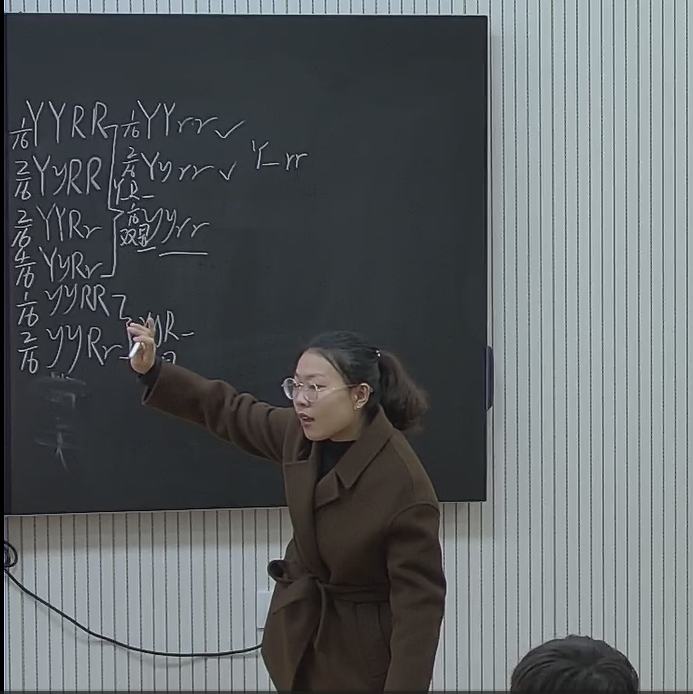 1/16 YYRR 1/16 YYrr ✓
2/16 YyRR 2/16 Yyrr ✓ Y_rr
Y_R_
2/16 YYRr 1/16 yyrr
双显
4/16 YyRr
1/16 yyRR
2/16 yyRr yyR_